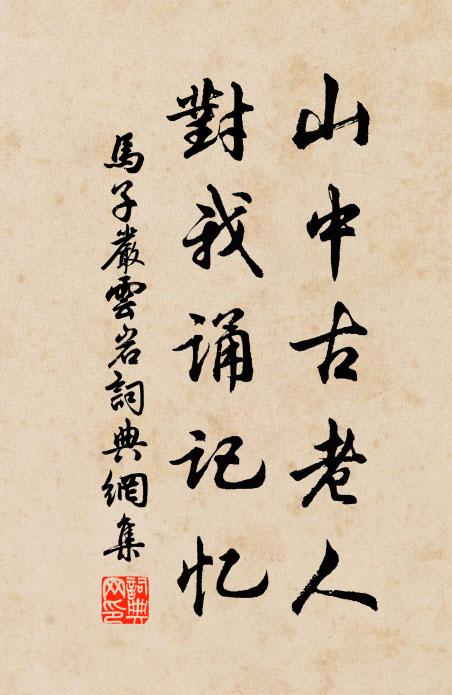 山中古老人
對我诵记忆
馬子嚴雲岩詞典網集
詞典网印